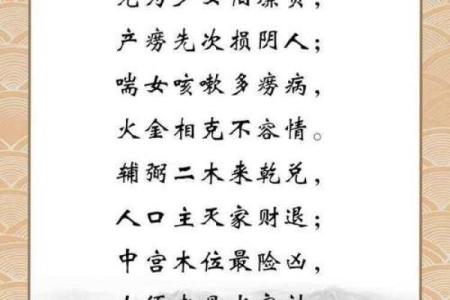 产痨先次损阴人；
喘女咳嗽多痨病，
火金相克不容情。
辅弼二木来乾兑，
人口主天家财退；
中宫木位最险凶，